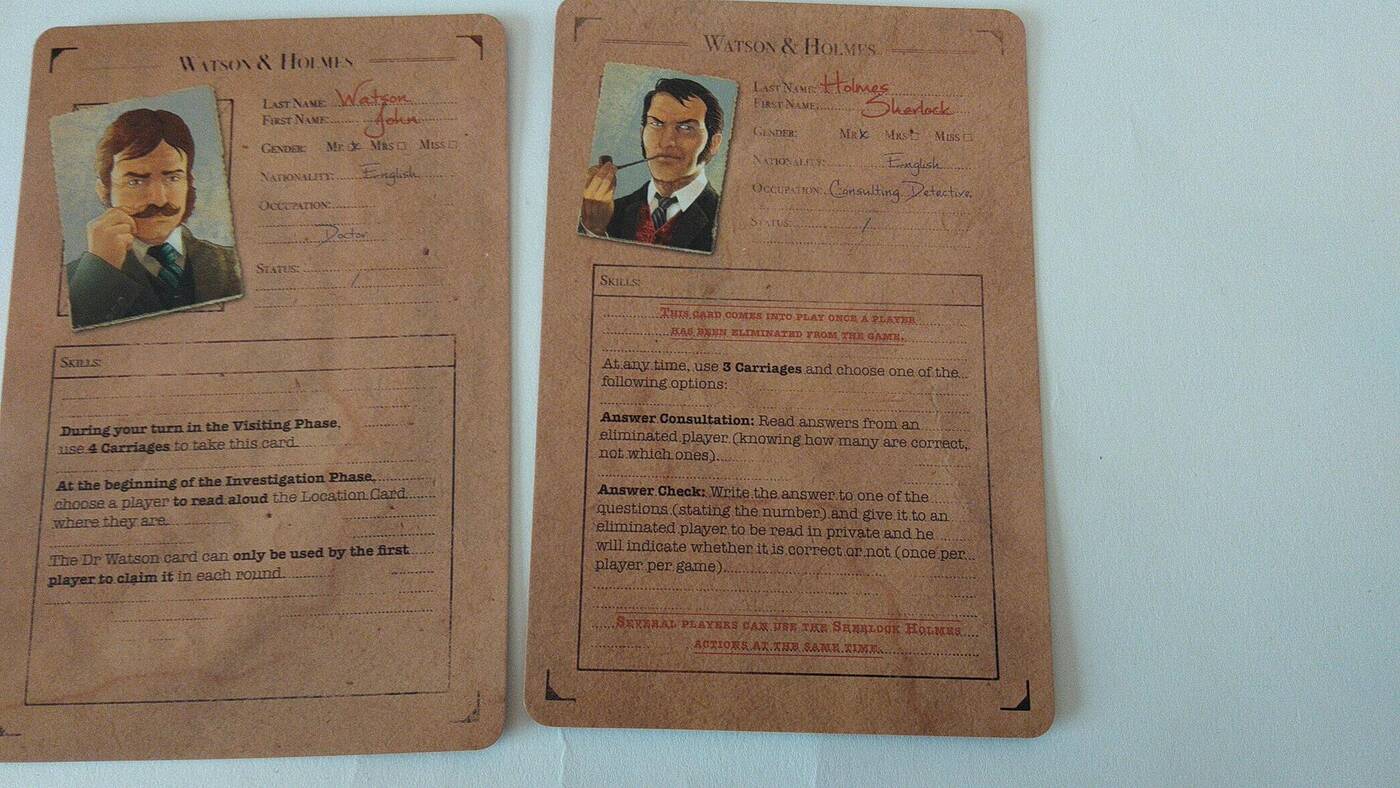 WATSON & HOLMES
LAST NAME: Watson
FIRST NAME: John
GENDER: MR x MRS □ MISS □
NATIONALITY: English
OCCUPATION:
Doctor
STATUS:
/
SKILLS:
During your turn in the Visiting Phase,
use 4 Carriages to take this card.
At the beginning of the Investigation Phase,
choose a player to read aloud the Location Card
where they are.
The Dr Watson card can only be used by the first
player to claim it in each round.
WATSON & HOLMES
LAST NAME: Holmes
FIRST NAME: Sherlock
GENDER: MR x MRS □ MISS □
NATIONALITY: English
OCCUPATION: Consulting Detective.
STATUS: /
SKILLS:
THIS CARD COMES INTO PLAY ONCE A PLAYER
HAS BEEN ELIMINATED FROM THE GAME.
At any time, use 3 Carriages and choose one of the
following options:
Answer Consultation: Read answers from an
eliminated player (knowing how many are correct,
not which ones).
Answer Check: Write the answer to one of the
questions (stating the number) and give it to an
eliminated player to be read in private and he
will indicate whether it is correct or not (once per
player per game).
SEVERAL PLAYERS CAN USE THE SHERLOCK HOLMES
ACTIONS AT THE SAME TIME.